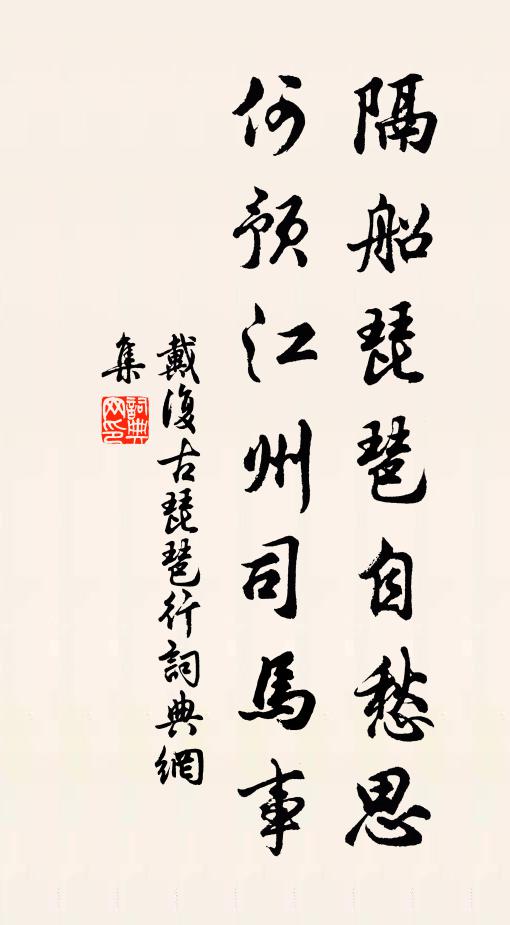 隔船琵琶自愁思
何預江州司馬事
戴復古琵琶行詞典網
集
詞典网印